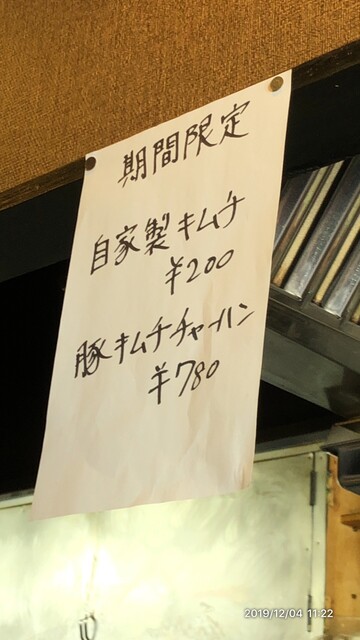 期間限定
自家製キムチ
¥200
豚キムチチャーハン
¥780
2019/12/04 11:22